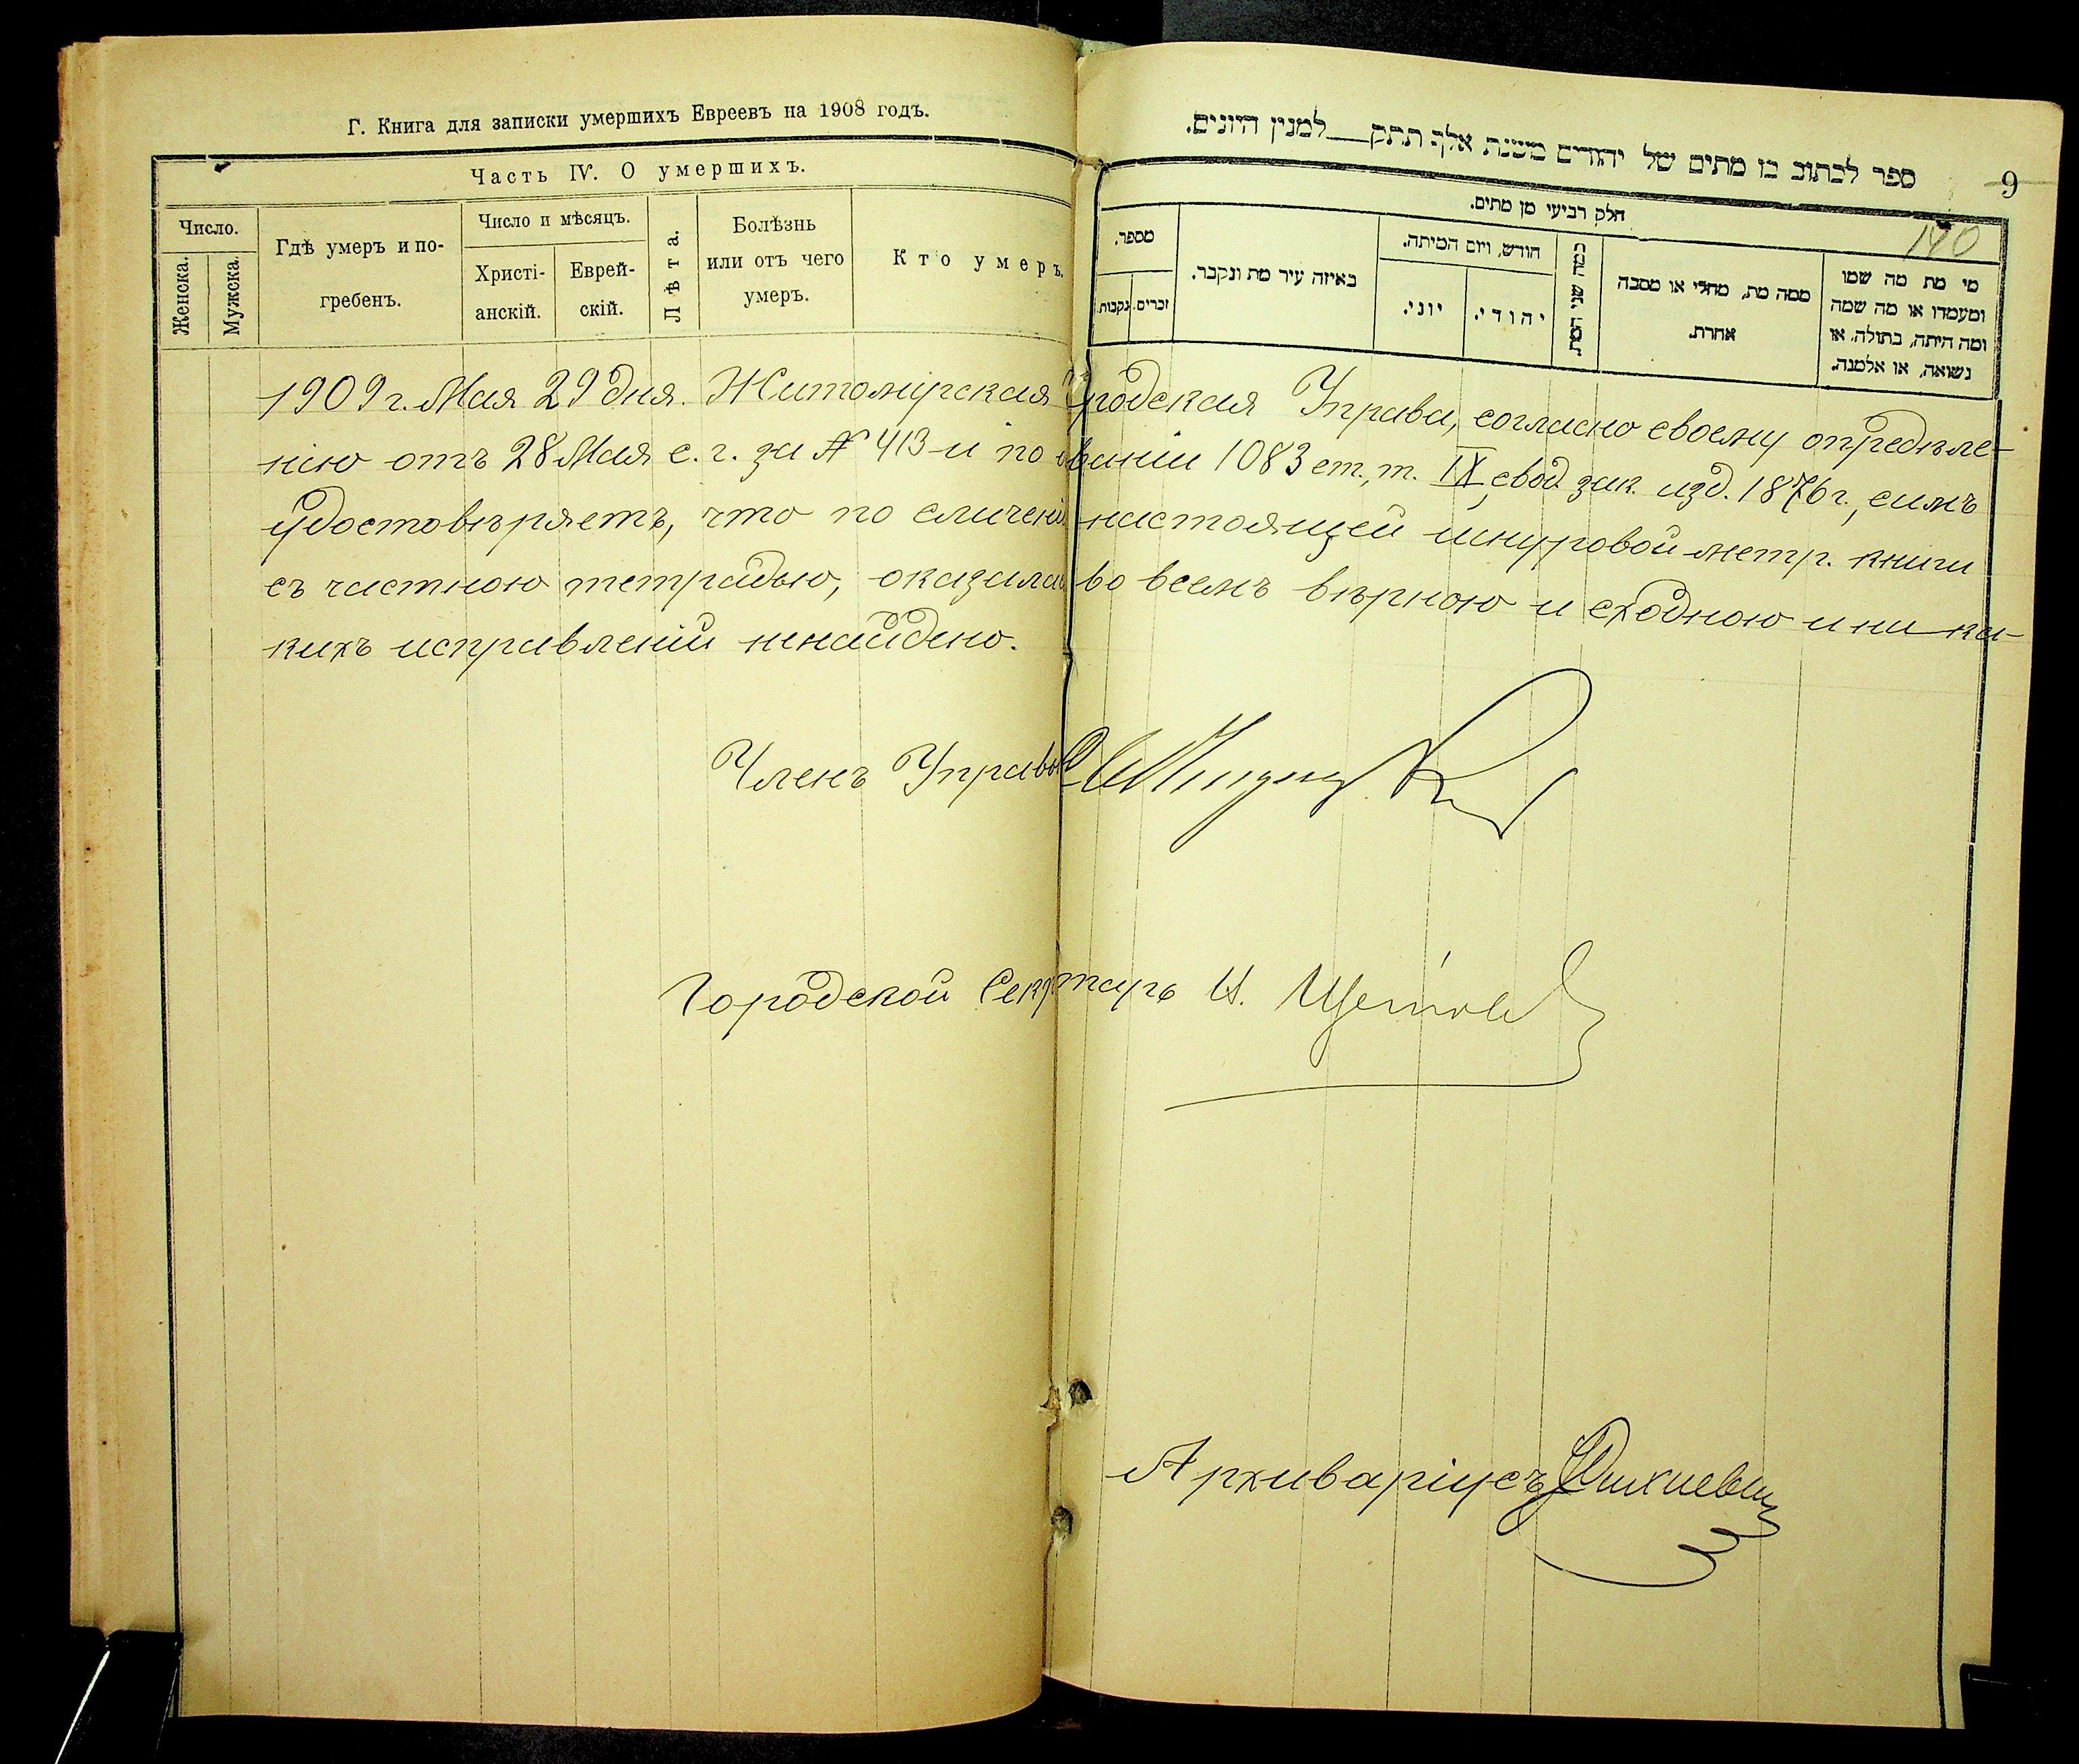 Г. Книга для записки умершихъ Евреевъ на 1908 годъ.
Часть IV. О умершихъ.
Число.
Женска.
Мужска.
Гдѣ умеръ и по-
гребенъ.
Число и мѣсяцъ.
Христі-
анскій.
Еврей-
скій.
Лѣта.
Болѣзнь
или отъ чего
умеръ.
Кто умеръ.
ספר לכתוב בו מתים של יהודים משנת אלף תתק למנין היונים.
9
140
חלק רביעי מן מתים.
מספר.
זכרים.
נקבות.
באיזה עיר מת ונקבר.
חודש, ויום המיתה.
יוני.
יהודי.
כמה שני המת.
ממה מת, מחלי או מסבה
אחרת.
מי מת מה שמו
ומעמדו או מה שמה
ומה היתה, בתולה, או
נשואה, או אלמנה.
1909 г. Мая 29 дня. Житомирская Городская Управа, согласно своему опредѣле-
нію отъ 28 Мая с. г. за № 413 и по ваніи 1083 ст., т. IX, свод. зак. изд. 1876 г., симъ
удостовѣряетъ, что по сличеніи настоящей шнуровой метр. книги
съ частною тетрадью, оказалась во всемъ вѣрною и сходною и ни ка-
кихъ исправленій ненайдено.
Членъ Управы
Городской Секретарь И.
Архиваріусъ